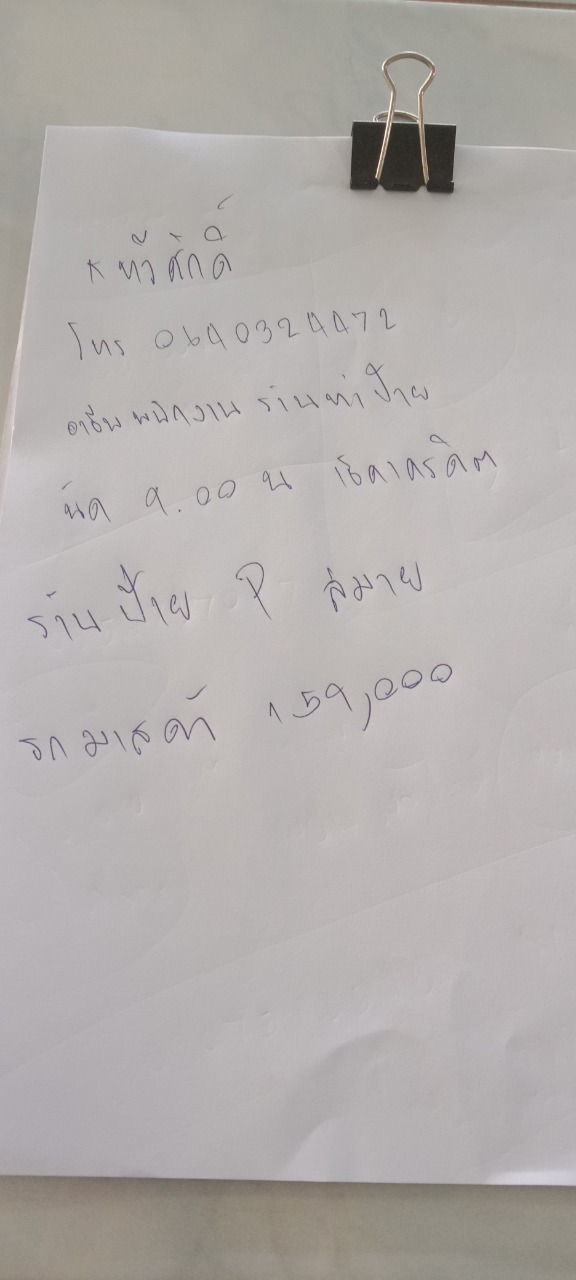 K ทวีศักดิ์
โทร 0640324472
อาชีพ พนักงาน ร้านทำป้าย
นัด 9.00 น เช็คเครดิต
ร้าน ป้าย P สมาย
รถ มาสด้า 159,000